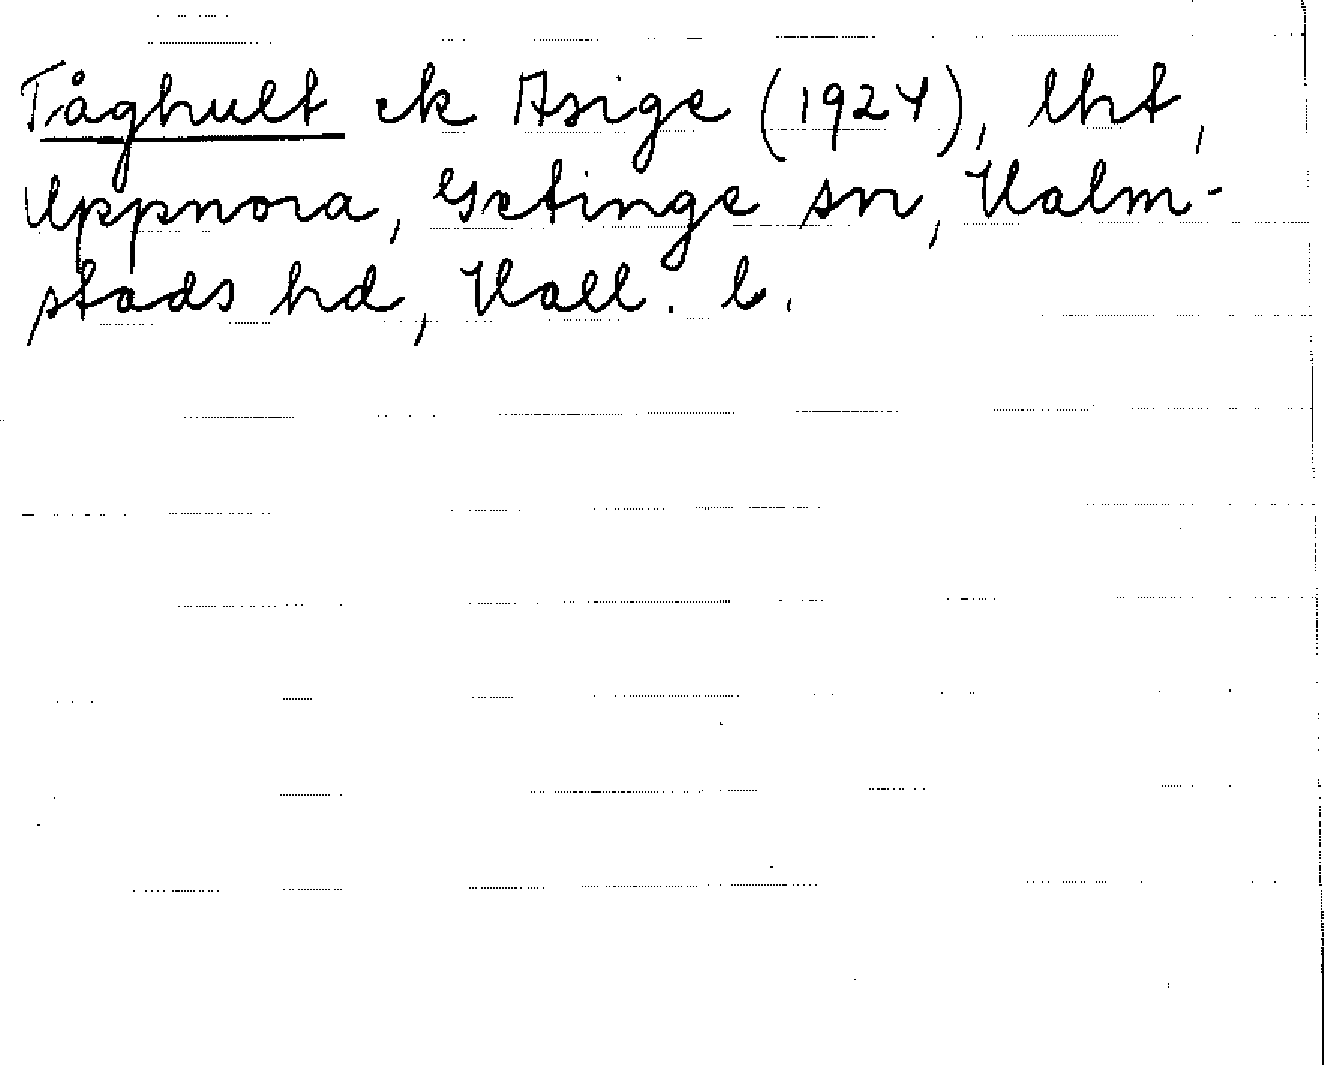 Tåghult ek Asige (1924), lht,
Uppnora, Getinge sn, Halm-
stads hd, Hall. l.